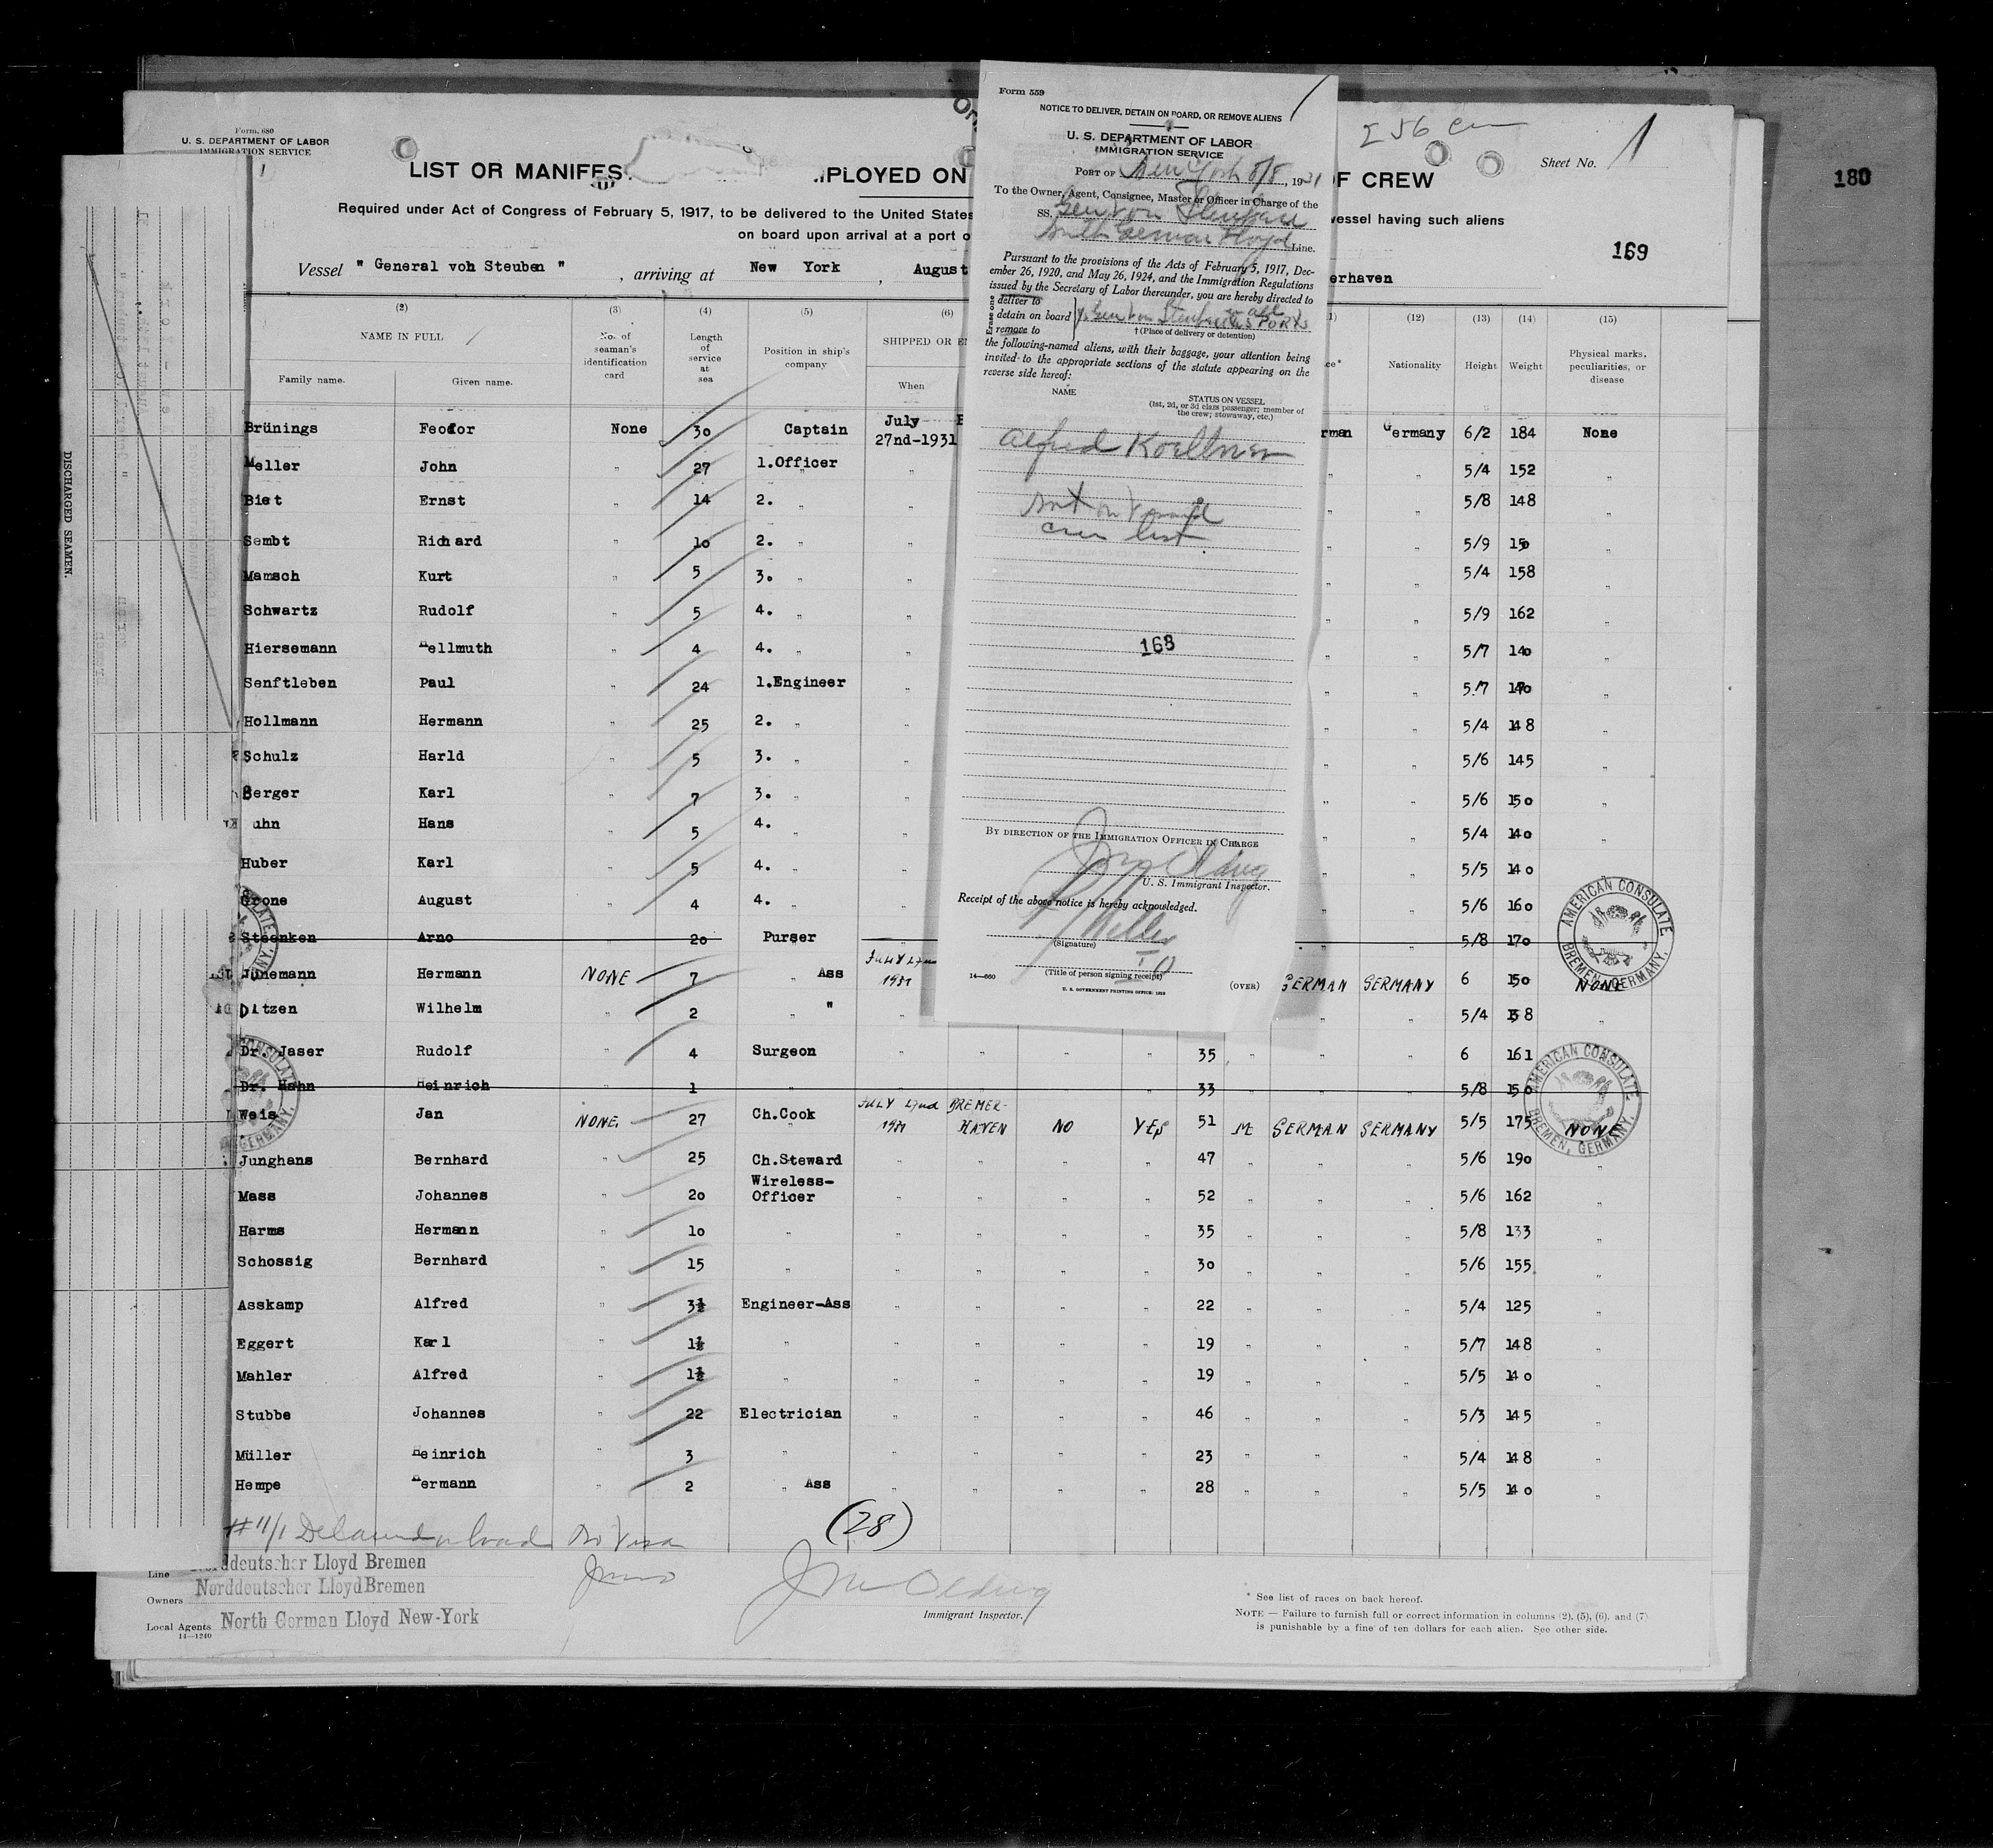 Form 680
U. S. DEPARTMENT OF LABOR
IMMIGRATION SERVICE
LIST OR MANIFES
PLOYED ON
F CREW
Sheet No. 1
180
Required under Act of Congress of February 5, 1917, to be delivered to the United States
vessel having such aliens
on board upon arrival at a port o
169
Vessel " General von Steuben " , arriving at New York , August
erhaven
(2) (3) (4) (5) (6) (12) (13) (14) (15)
NAME IN FULL
Family name. Given name.
No. of seaman's identification card
Length of service at sea
Position in ship's company
SHIPPED OR E
When
Nationality Height Weight
Physical marks, peculiarities, or disease
DISCHARGED SEAMEN.
Brünings Feodor None 30 Captain July 27nd-1931 rman Germany 6/2 184 None
Meller John " 27 1.Officer " " " 5/4 152 "
Biet Ernst " 14 2. " " " " 5/8 148 "
Sembt Richard " 10 2. " " " " 5/9 150 "
Mamsch Kurt " 5 3. " " " " 5/4 158 "
Schwartz Rudolf " 5 4. " " " " 5/9 162 "
Hiersemann Hellmuth " 4 4. " " " " 5/7 140 "
Senftleben Paul " 24 1.Engineer " " " 5/7 "
Hollmann Hermann " 25 2. " " " " 5/4 148 "
Schulz Harld " 5 3. " " " " 5/6 145 "
Berger Karl " 7 3. " " " " 5/6 150 "
uhn Hans " 5 4. " " " " 5/4 140 "
Huber Karl " 5 4. " " " " 5/5 140 "
Grone August " 4 4. " " " " 5/6 160 "
Steenken Arno 20 Purser 5/8 170
Jünemann Hermann NONE 7 " Ass JULY 27nd 1931 GERMAN GERMANY 6 150 NONE
Ditzen Wilhelm " 2 " " " " " 5/4 "
Dr. Jaser Rudolf " 4 Surgeon " " " " 35 " " " 6 161
Dr. Hahn Heinrich 1 " " 33 5/8 150
Weis Jan NONE. 27 Ch.Cook JULY 27nd 1931 BREMER-HAVEN NO YES 51 M GERMAN GERMANY 5/5 175 NONE
Junghans Bernhard " 25 Ch.Steward " " " " 47 " " " 5/6 190 "
Mass Johannes " 20 Wireless-Officer " " " " 52 " " " 5/6 162 "
Harms Hermann " 10 " " " " " 35 " " " 5/8 133 "
Schossig Bernhard " 15 " " " " " 30 " " " 5/6 155 "
Asskamp Alfred " 3½ Engineer-Ass " " " " 22 " " " 5/4 125 "
Eggert Karl " 1½ " " " " " 19 " " " 5/7 148 "
Mahler Alfred " 1½ " " " " " 19 " " " 5/5 140 "
Stubbe Johannes " 22 Electrician " " " " 46 " " " 5/3 145 "
Müller Heinrich " 3 " " " " " 23 " " " 5/4 148 "
Hempe Hermann " 2 " Ass " " " " 28 " " " 5/5 140 "
AMERICAN CONSULATE
BREMEN, GERMANY.
AMERICAN CONSULATE
BREMEN, GERMANY.
#11/1 Detained on board no visa
(28)
Line Norddeutscher Lloyd Bremen
Owners Norddeutscher Lloyd Bremen
Local Agents North German Lloyd New-York
14—1240
Immigrant Inspector.
* See list of races on back hereof.
NOTE — Failure to furnish full or correct information in columns (2), (5), (6), and (7)
is punishable by a fine of ten dollars for each alien. See other side.
Form 559
NOTICE TO DELIVER, DETAIN ON BOARD, OR REMOVE ALIENS
U. S. DEPARTMENT OF LABOR
IMMIGRATION SERVICE
PORT OF New York 8/8, 1931
To the Owner, Agent, Consignee, Master or Officer in Charge of the
SS. Gen von Steuben
North German Lloyd Line.
Pursuant to the provisions of the Acts of February 5, 1917, Dec-
ember 26, 1920, and May 26, 1924, and the Immigration Regulations
issued by the Secretary of Labor thereunder, you are hereby directed to
Erase one
deliver to
detain on board
remove to
Gen von Steuben all US PORTS
† (Place of delivery or detention)
the following-named aliens, with their baggage, your attention being
invited to the appropriate sections of the statute appearing on the
reverse side hereof:
NAME
STATUS ON VESSEL
(1st, 2d, or 3d class passenger; member of
the crew; stowaway, etc.)
Alfred Koellner
not on visaed
crew list
168
BY DIRECTION OF THE IMMIGRATION OFFICER IN CHARGE
U. S. Immigrant Inspector.
Receipt of the above notice is hereby acknowledged.
(Signature)
(Title of person signing receipt)
14—660
U. S. GOVERNMENT PRINTING OFFICE: 1929
(OVER)